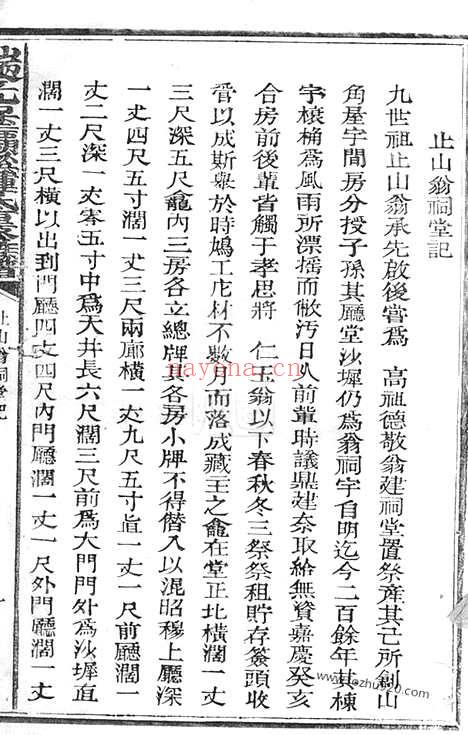 止山翁祠堂記
九世祖止山翁承先啟後嘗為 高祖德敬翁建祠堂置祭產其己所創山
角屋宇間房分授子孫其廳堂沙墀仍為翁祠宇自明迄今二百餘年其棟
宇榱桷為風雨所漂搖而敝污日久前輩時議鼎建奈取給無資嘉慶癸亥
合房前後輩皆觸于孝思將 仁玉翁以下春秋冬三祭祭租貯存簽頭收
管以成斯舉於時鳩工庀材不數月而落成藏主之龕在堂正北橫濶一丈
三尺深五尺龕內三房各立總牌其各房小牌不得僭入以混昭穆上廳深
一丈四尺五寸濶一丈三尺兩廊橫一丈九尺五寸直一丈一尺前廳濶一
丈二尺深一丈零五寸中為天井長六尺濶三尺前為大門門外為沙墀直
濶一丈三尺橫以出到門廳四丈四尺內門廳濶一丈一尺外門廳濶一丈
止山翁祠堂記
nayona.cn
www.jiazhu920.com